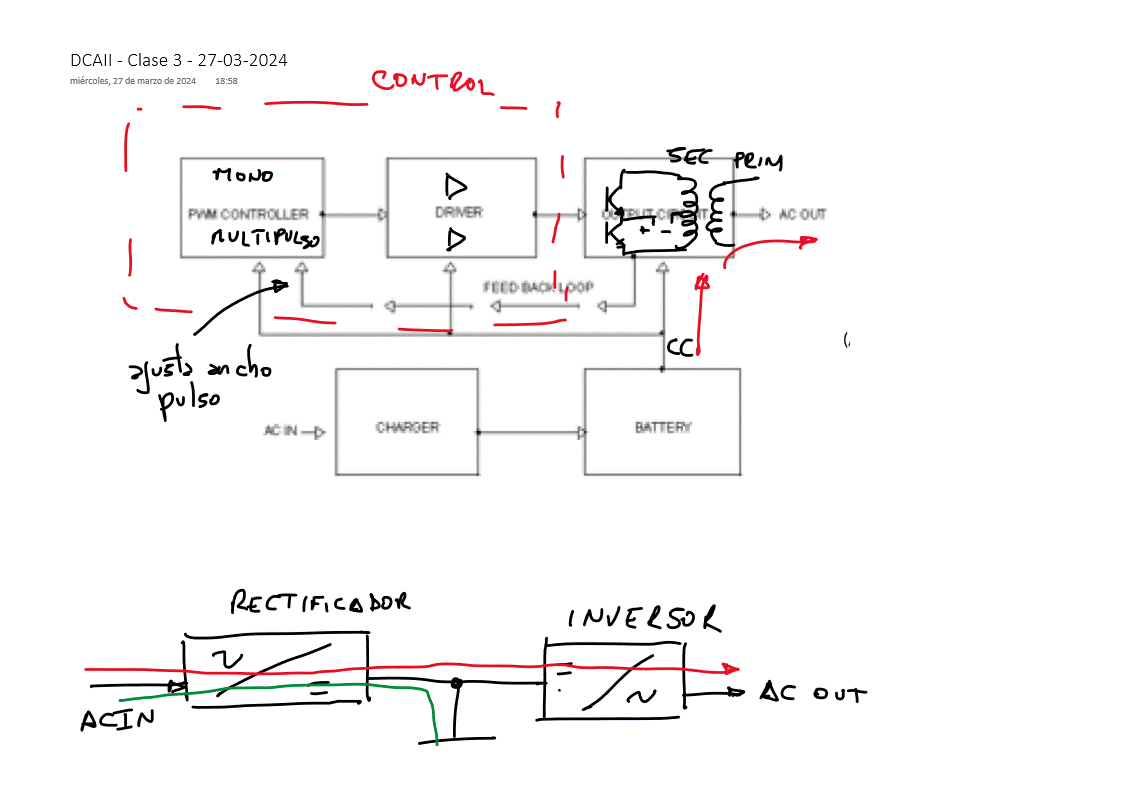 DCAII - Clase 3 - 27-03-2024
miércoles, 27 de marzo de 2024 18:58
CONTROL
MONO
PWM CONTROLLER
MULTIPULSO
DRIVER
SEC
PRIM
OUTPUT CIRCUIT
+ -
AC OUT
FEED BACK LOOP
ajusta ancho
pulso
CC
AC IN
CHARGER
BATTERY
RECTIFICADOR
INVERSOR
ACIN
AC OUT